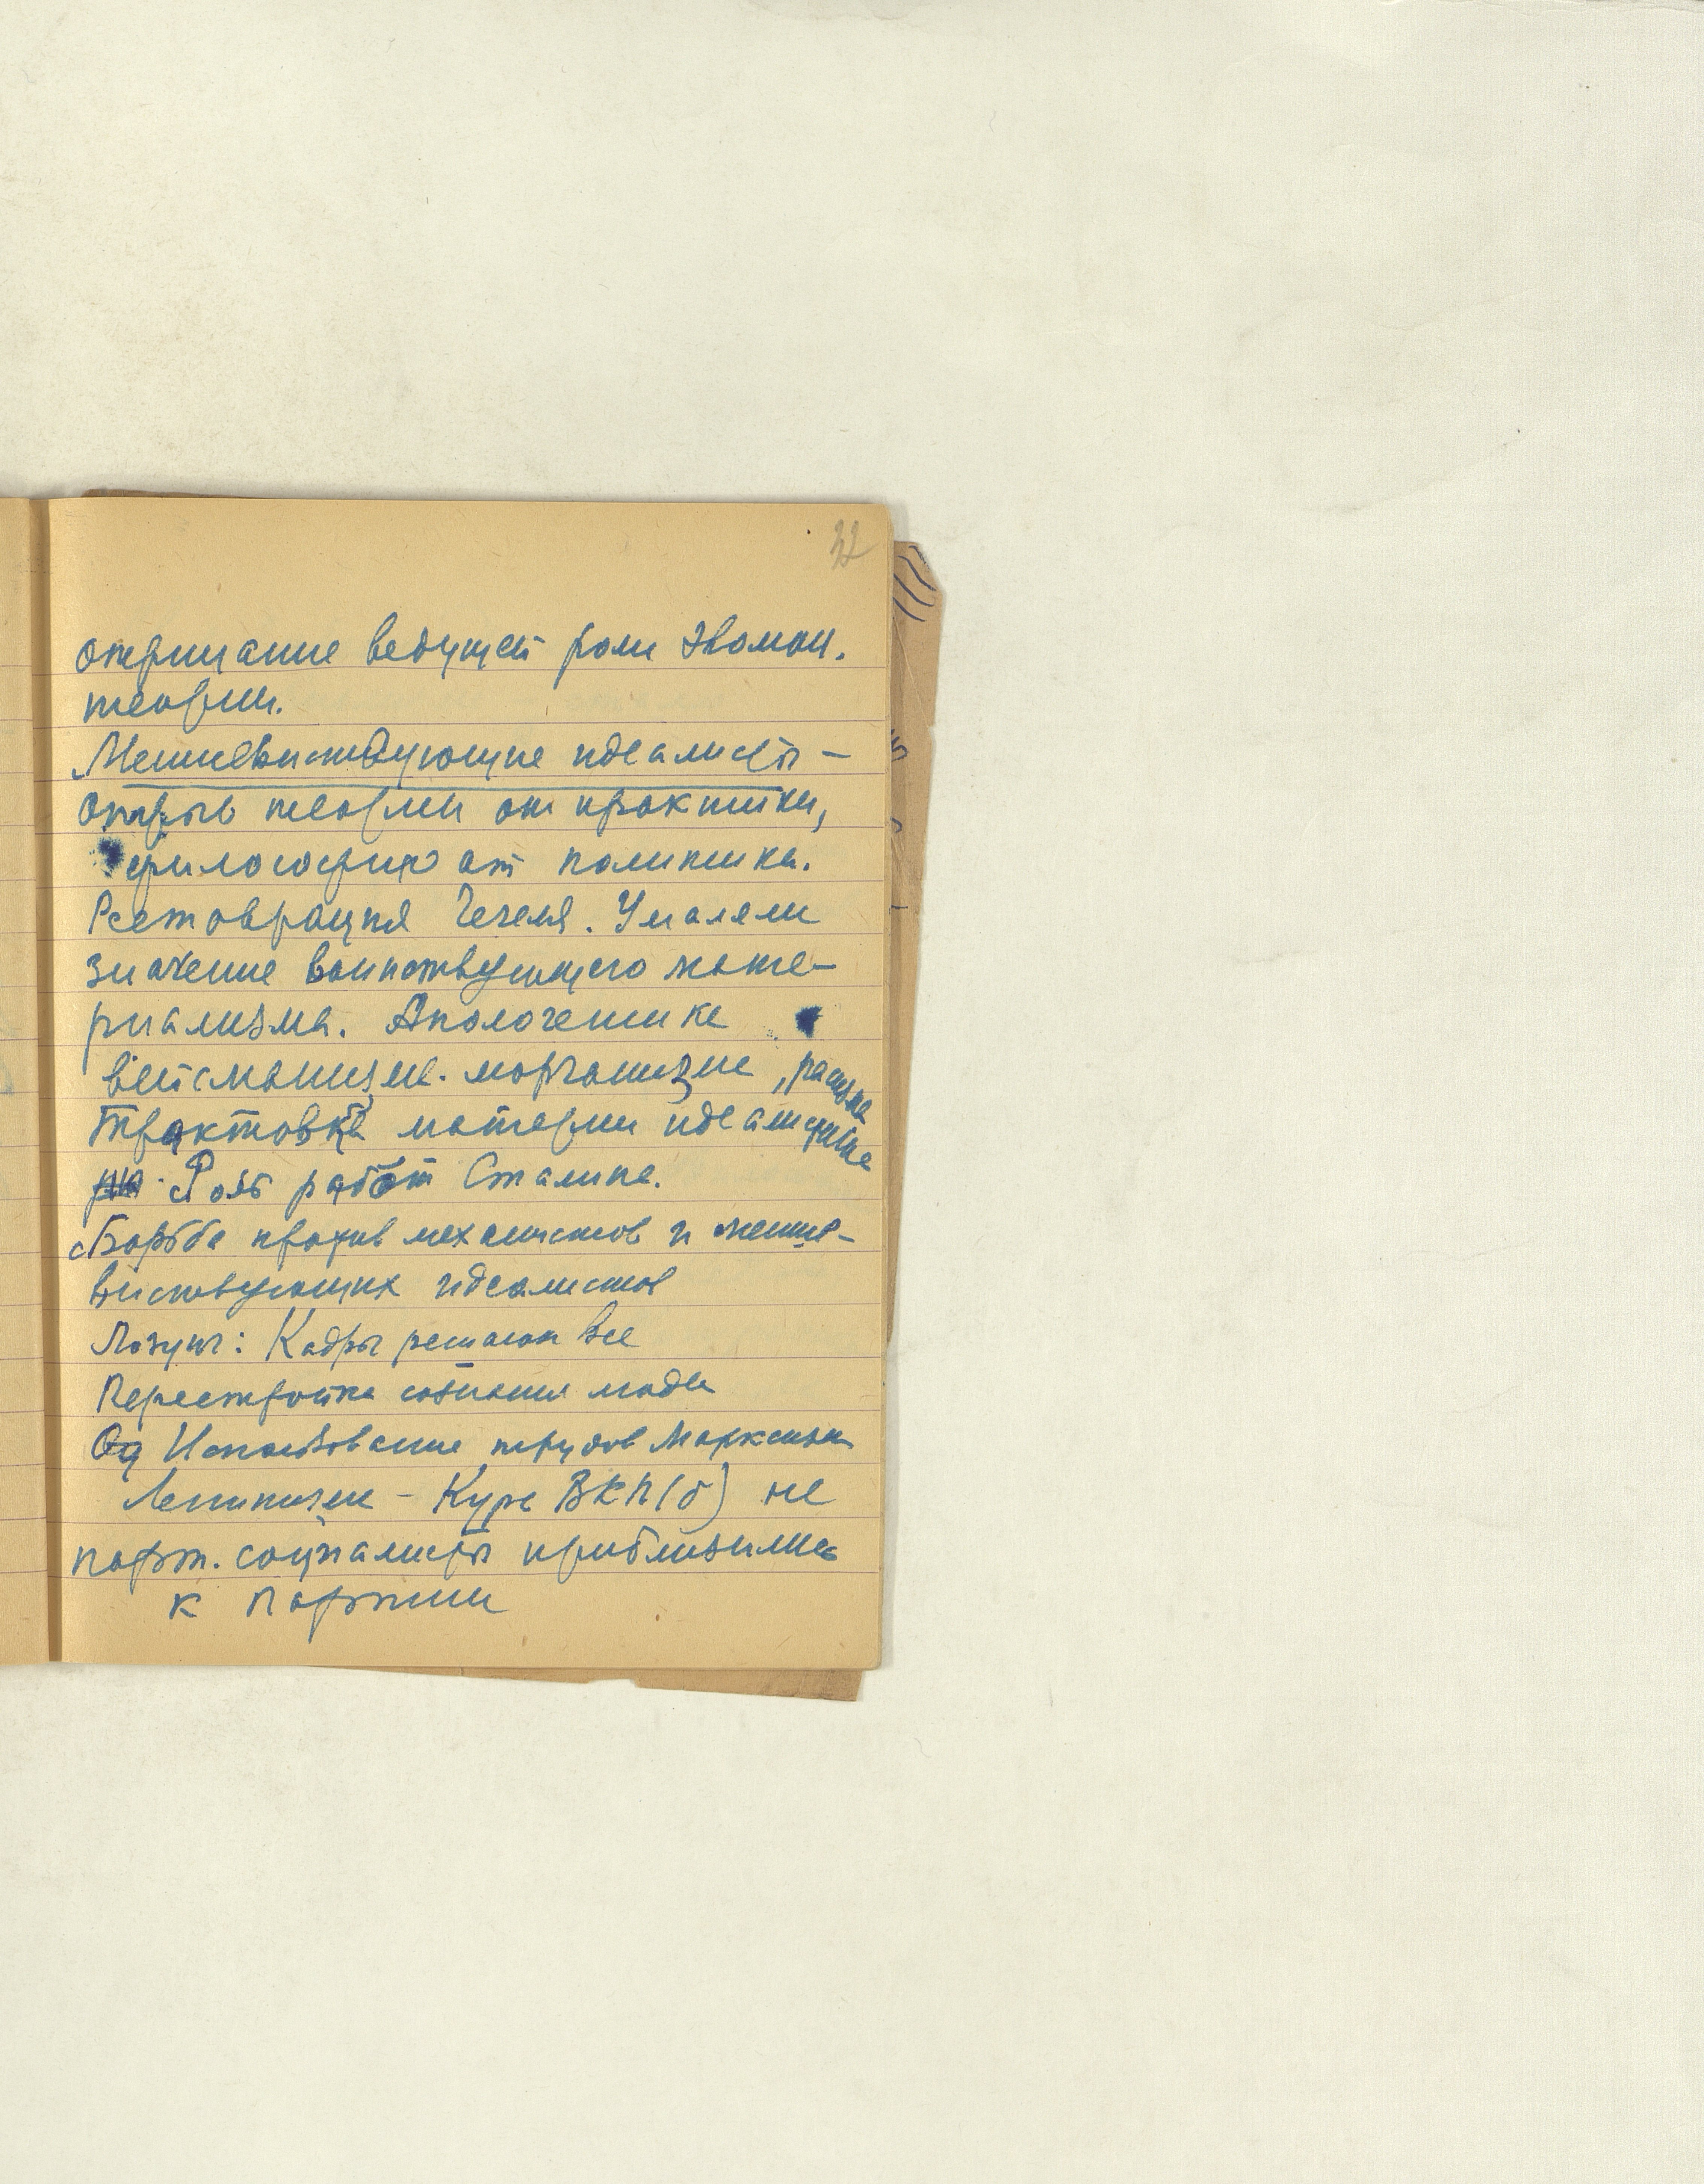 32
отрицание ведущей роли эволюц.
теории.
Меньшевиствующие идеалисты –
отрыв теории от практики,
философию от политики.
Реставрация Гегеля. Умаляли
значение воинствующего мате-
риализма. Апологетика
вейсманизма. морганизма, расизма
Трактовка материи идеалистиче
Роль работ Сталина.
Борьба против механистов и меньше-
виствующих идеалистов
Лозунг: Кадры решают все
Перестройка сознания людей
Од Использование трудов Марксизма
Ленинизма – Курс ВКП(б) не
парт. социалисты приблизились
к партии